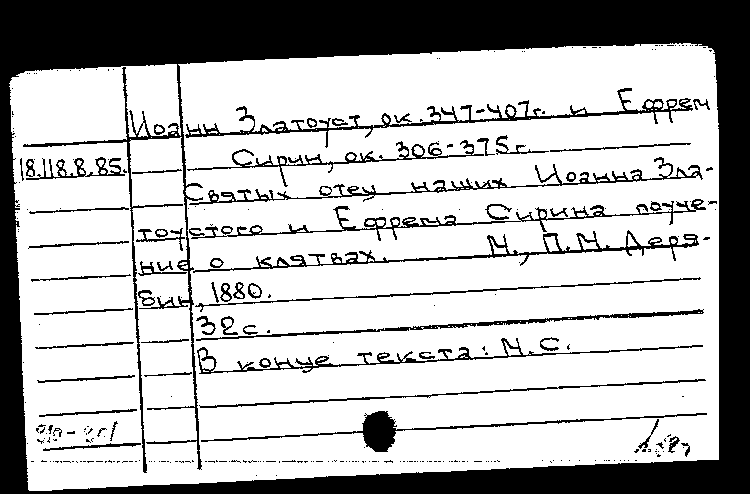 Иоанн Златоуст, ок. 347-407г. и Ефрем
18.118.8.85. Сирин, ок. 306-375г.
Святых отец наших Иоанна Зла-
тоустого и Ефрема Сирина поуче-
ние о клятвах. М., П.М. Деря-
бин, 1880.
32с.
В конце текста: М.С.